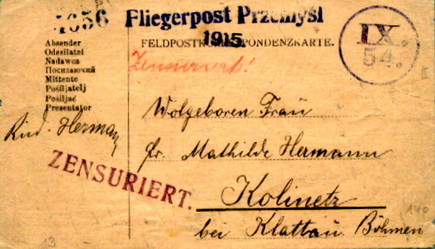 1656
Fliegerpost Przemyśl
1915.
FELDPOSTKORRESPONDENZKARTE.
IX.
54.
Absender
Odesílatel
Nadawca
Посилаючий
Mittente
Pošiljatelj
Pošiljač
Presentator
Zensuriert!
Rud. Hermann
Wolgeboren Frau
Fr. Mathilde Hermann
Kolinetz
bei Klattau Böhmen
ZENSURIERT.
13
140